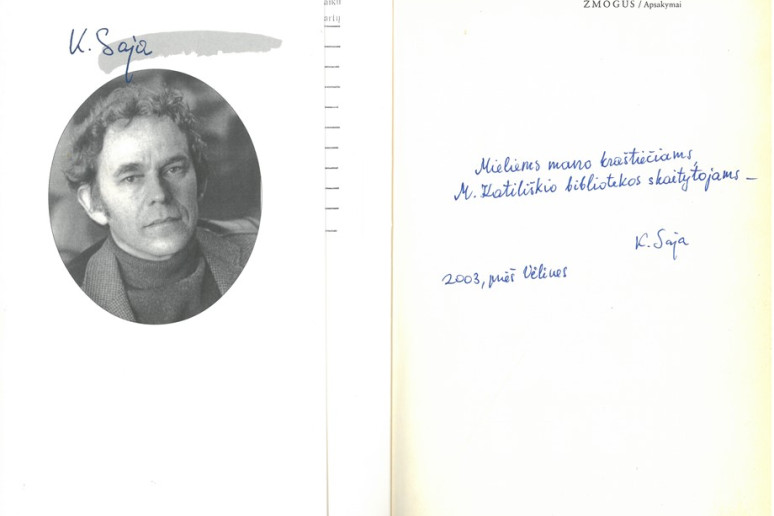 K. Saja
ŽMOGUS / Apsakymai
Mieliems mano kraštiečiams,
M. Katiliškio bibliotekos skaitytojams –
K. Saja
2003, prieš Vėlines